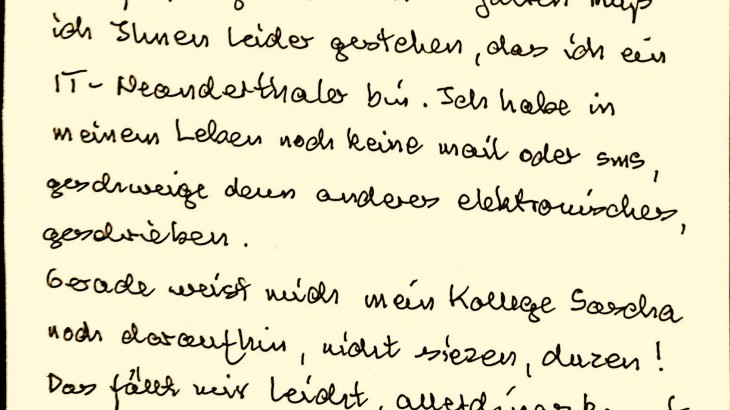 muß
ich Ihnen leider gestehen, das ich ein
IT-Neanderthaler bin. Ich habe in
meinem Leben noch keine mail oder sms,
geschweige denn anderes elektronisches,
geschrieben.
Gerade weist mich mein Kollege Sascha
noch daraufhin, nicht siezen, duzen!
Das fällt mir leicht, allerdings